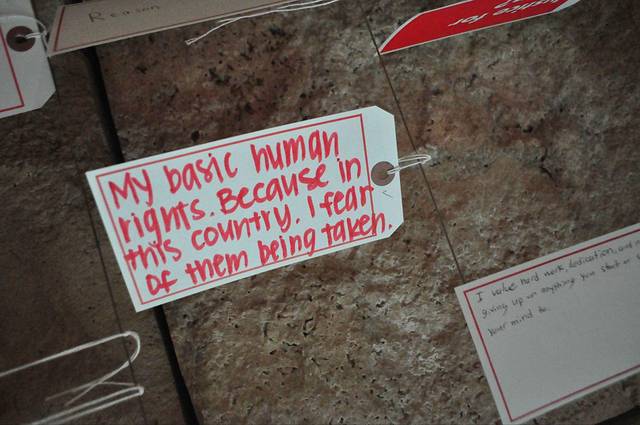 Reason
Justice for
My basic human
rights. Because in
this country. I fear
of them being taken.
I value hard work, dedication, and
giving up on anything you start or
your mind to.